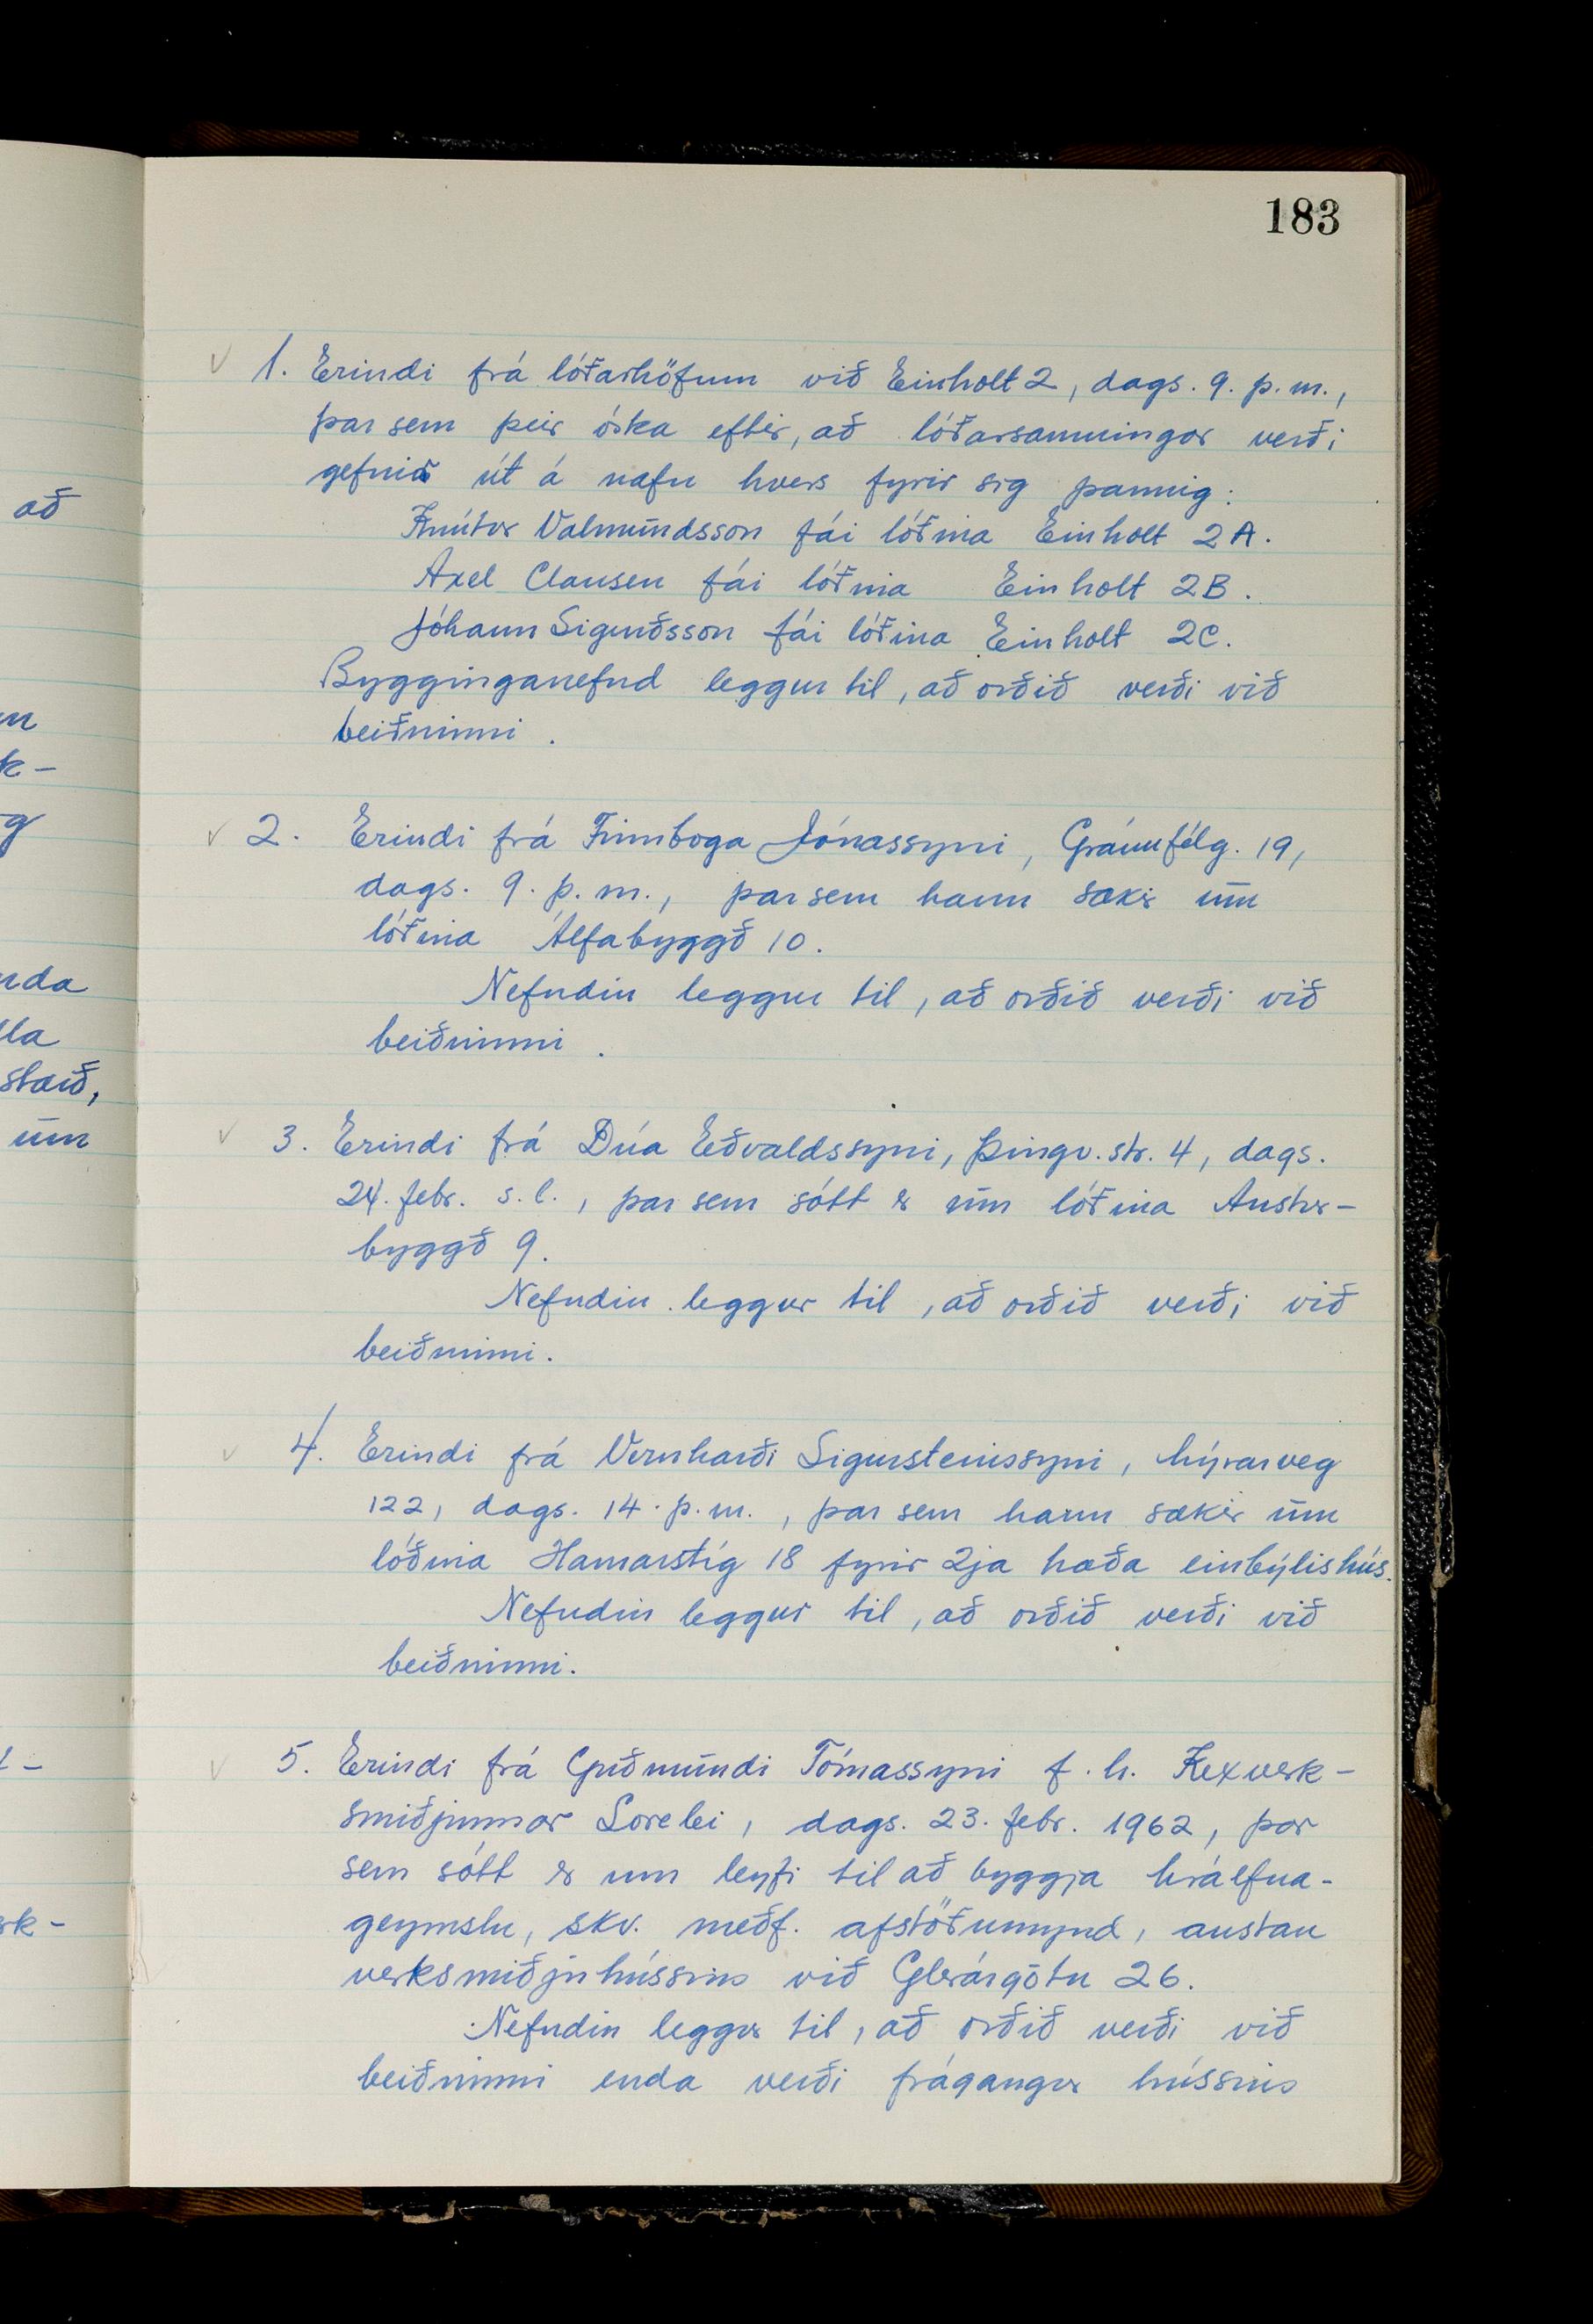 183
að
n
k-
g
nda
lla
stæð,
um
t-
rk-
✓ 1. Erindi frá lóðarhöfum við Einholt 2, dags. 9. þ.m.,
þar sem þeir óska eftir, að lóðarsamningar verði
gefnir út á nafn hvers fyrir sig þannig:
Knútur Valmundsson fái lóðina Einholt 2A.
Axel Clausen fái lóðina Einholt 2B.
Jóhann Sigurðsson fái lóðina Einholt 2C.
Bygginganefnd leggur til, að orðið verði við
beiðninni.
✓ 2. Erindi frá Finnboga Jónassyni, Gránufélg. 19,
dags. 9. þ.m., þar sem hann sækir um
lóðina Álfabyggð 10.
Nefndin leggur til, að orðið verði við
beiðninni.
✓ 3. Erindi frá Dúa Eðvaldssyni, Þingv.str. 4, dags.
24. febr. s.l., þar sem sótt er um lóðina Austur-
byggð 9.
Nefndin leggur til, að orðið verði við
beiðninni.
✓ 4. Erindi frá Vernharði Sigursteinssyni, Mýrarveg
122, dags. 14. þ.m., þar sem hann sækir um
lóðina Hamarstíg 18 fyrir 2ja hæða einbýlishús.
Nefndin leggur til, að orðið verði við
beiðninni.
✓ 5. Erindi frá Guðmundi Tómassyni f.h. Kexverk-
smiðjunnar Lorelei, dags. 23. febr. 1962, þar
sem sótt er um leyfi til að byggja hráefna-
geymslu, skv. meðf. afstöðumynd, austan
verksmiðjuhússins við Glerárgötu 26.
Nefndin leggur til, að orðið verði við
beiðninni enda verði frágangur hússins